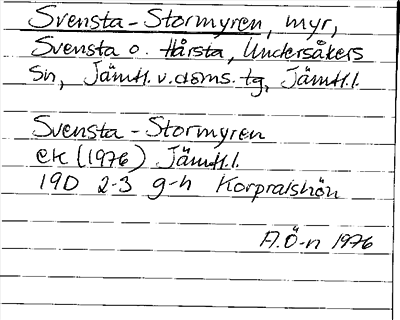 Svensta-Stormyren, myr,
Svensta o. Hårsta, Undersåkers
Sn, Jämtl. v. doms. tg, Jämtl. l.
Svensta-Stormyren
ek (1976) Jämtl. l.
19D 2-3 g-h Korpralshön
A.Ö-n 1976